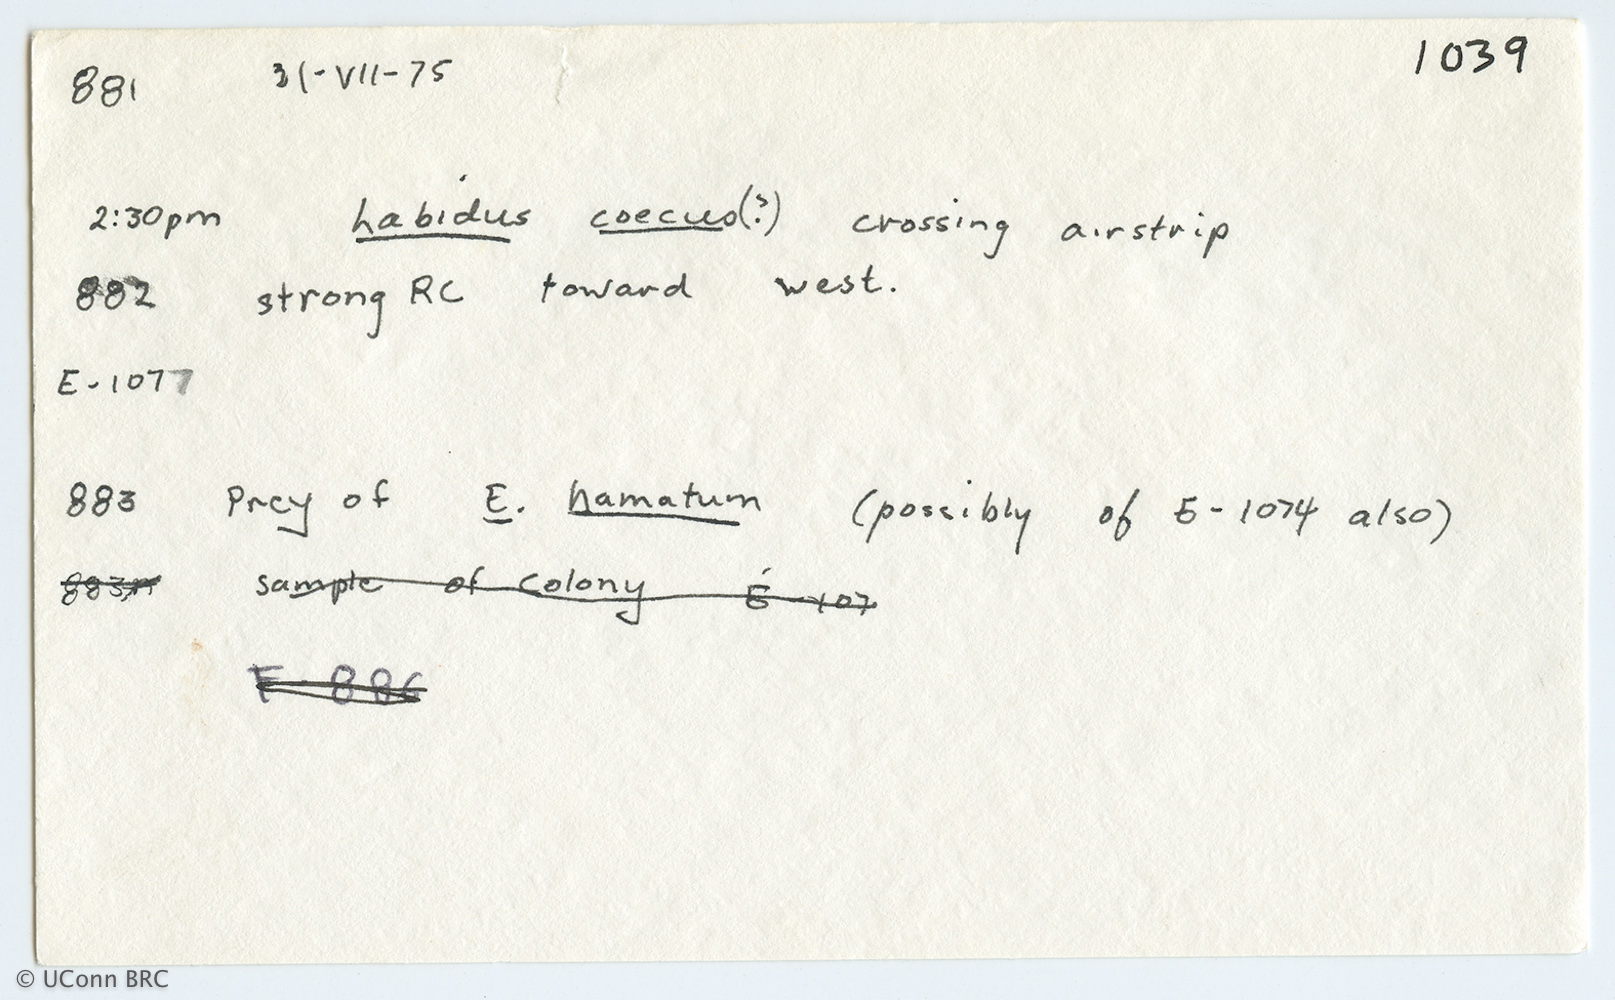 881 31-VII-75 1039
2:30pm Labidus coecus(?) crossing airstrip
882 strong RC toward west.
E-1077
883 Prey of E. hamatum (possibly of E-1074 also)
883 sample of colony E-107
E-886
© UConn BRC